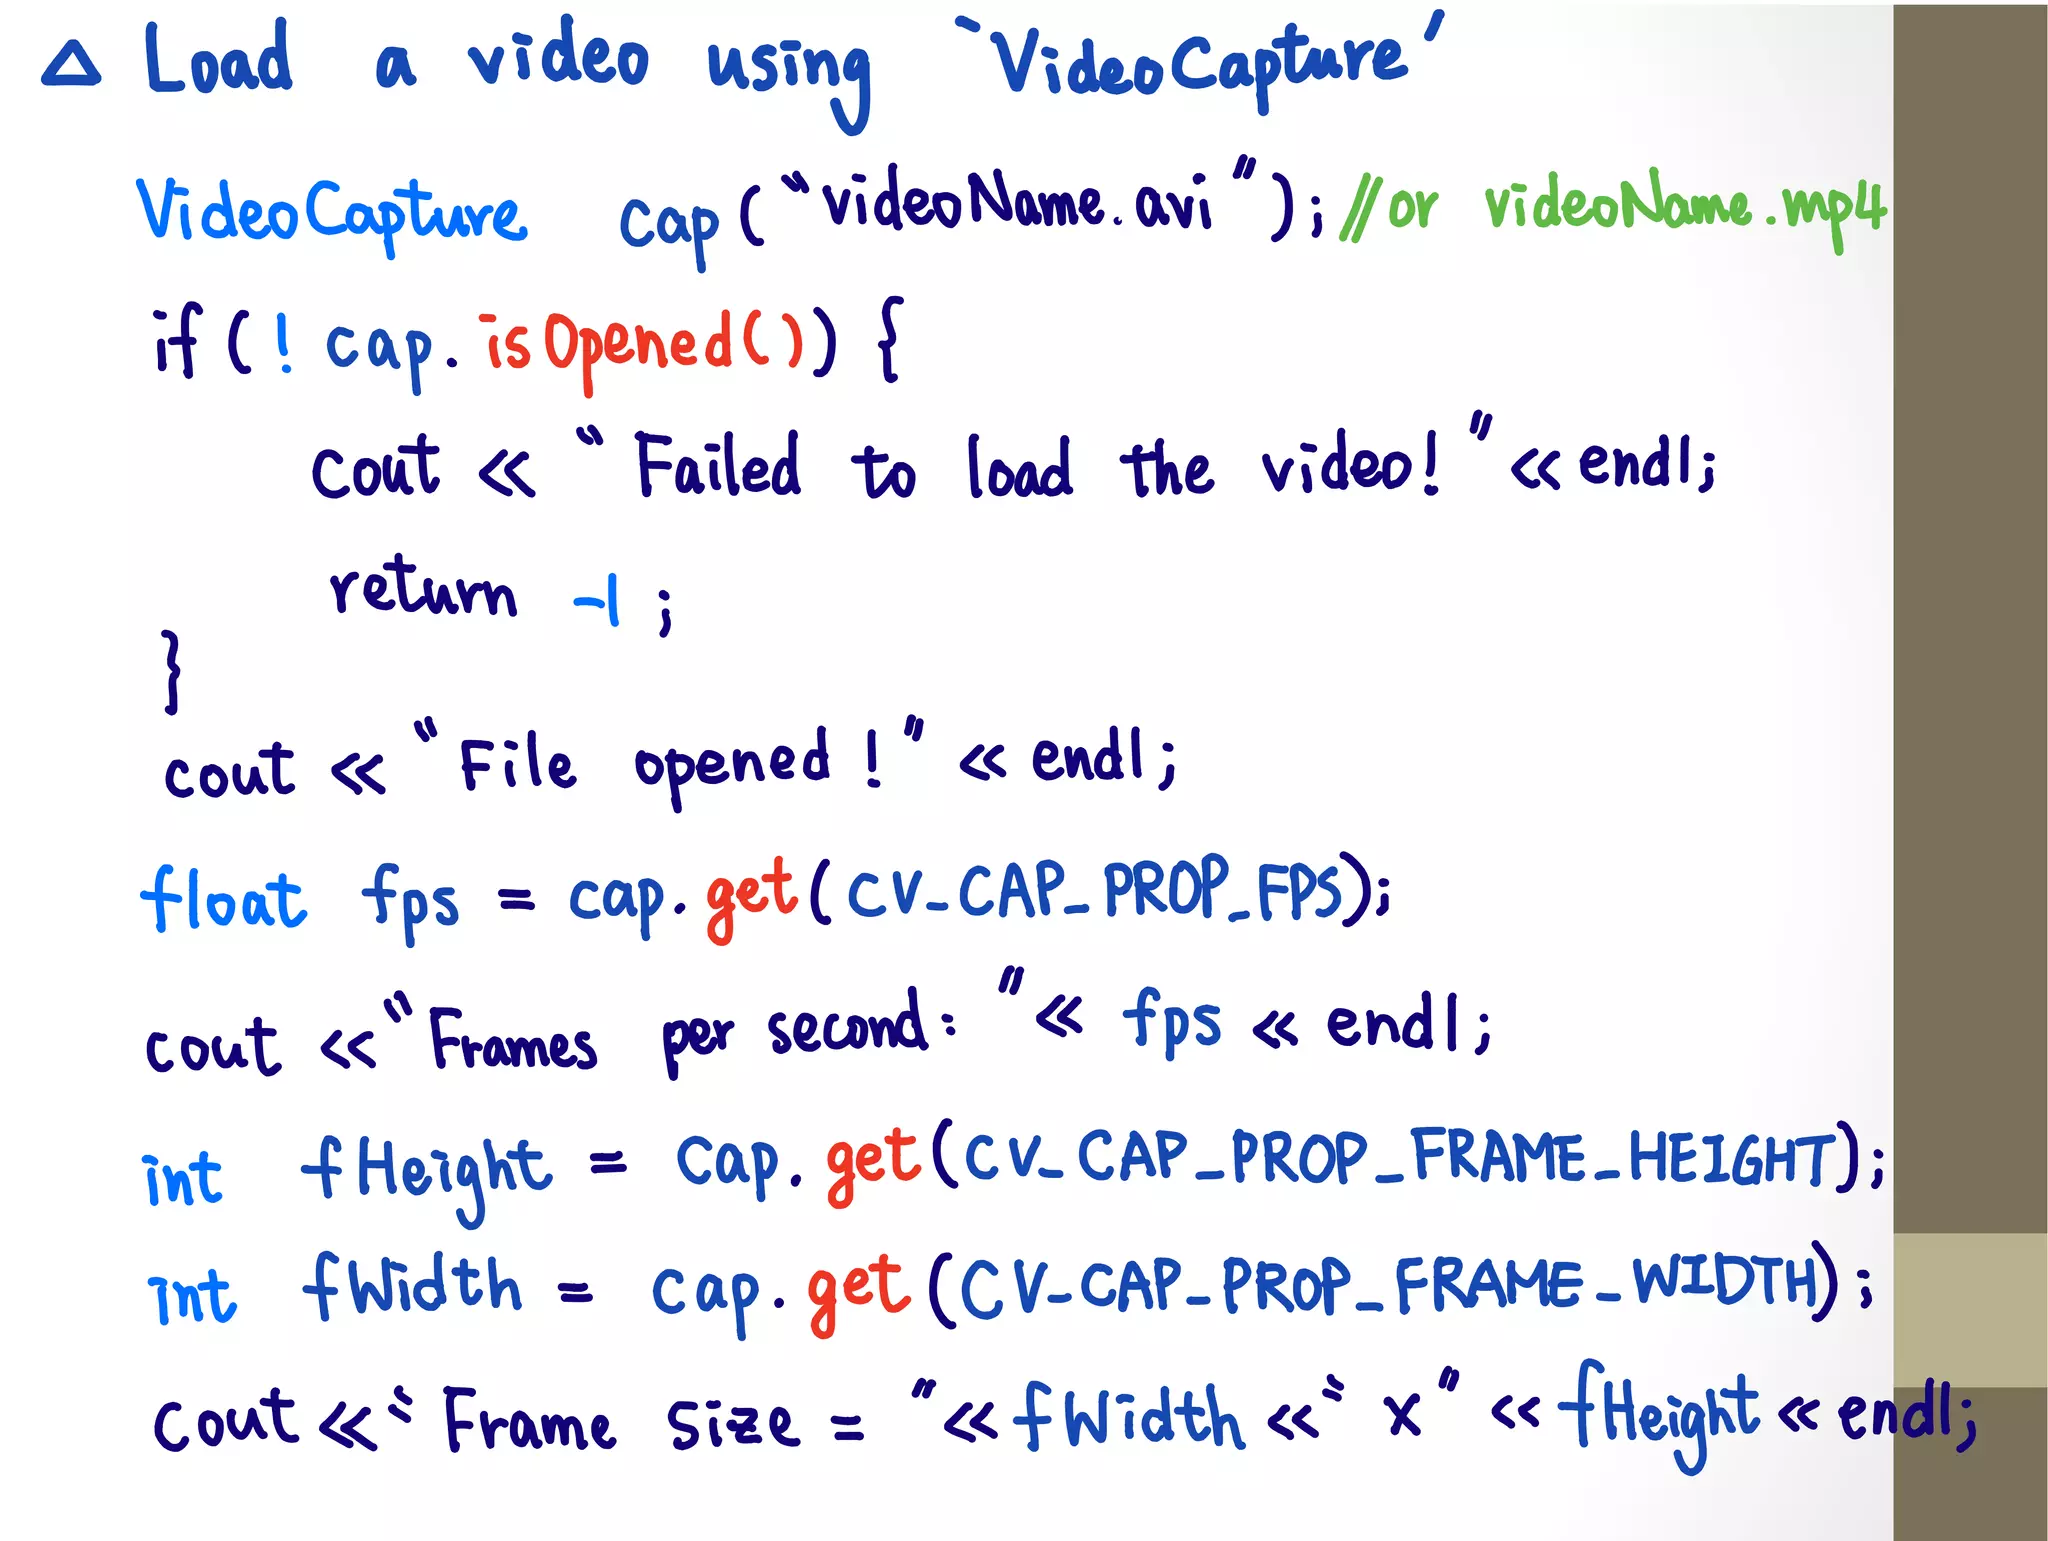 △ Load a video using `VideoCapture'
VideoCapture cap("videoName.avi"); //or videoName.mp4
if(! cap. isOpened()) {
cout << "Failed to load the video!" << endl;
return -1 ;
}
cout << "File opened !" << endl;
float fps = cap. get( CV_CAP_PROP_FPS);
cout << "Frames per second: " << fps << endl;
int fHeight = cap. get(CV_CAP_PROP_FRAME_HEIGHT);
int fWidth = cap. get (CV_CAP_PROP_FRAME_WIDTH);
cout << "Frame size = " << fWidth << " x " << fHeight << endl;